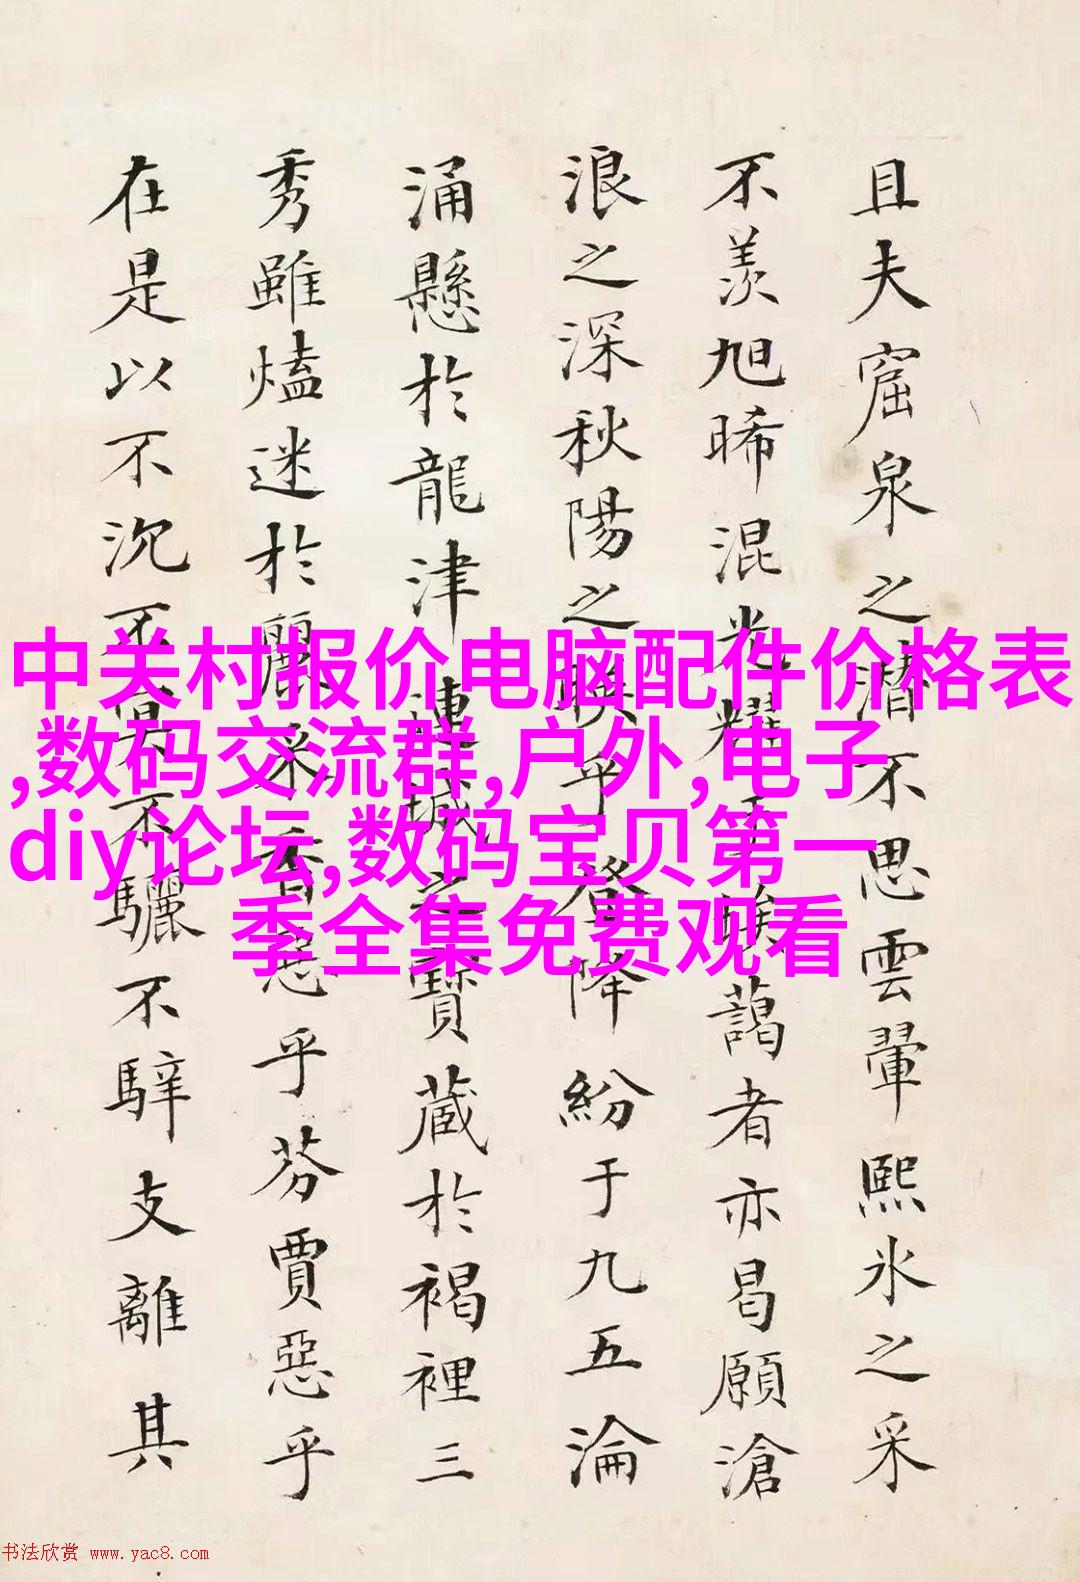 中关村报价电脑配件价格表
,数码交流群,户外,电子
diy论坛,数码宝贝第一
季全集免费观看
且夫窟泉之潜不思雲翬熙冰之采
不羨旭晞混光耀于埃藹者亦曷願滄
浪之深秋陽之暎乎登降紛于九五淪
涌懸於龍津連城之寶藏於褐裡三
秀雖熆迷於麗采香惡乎芬賈惡乎
在是以不沉不冥不驪不騂支離其
书法欣赏 www.yac8.com